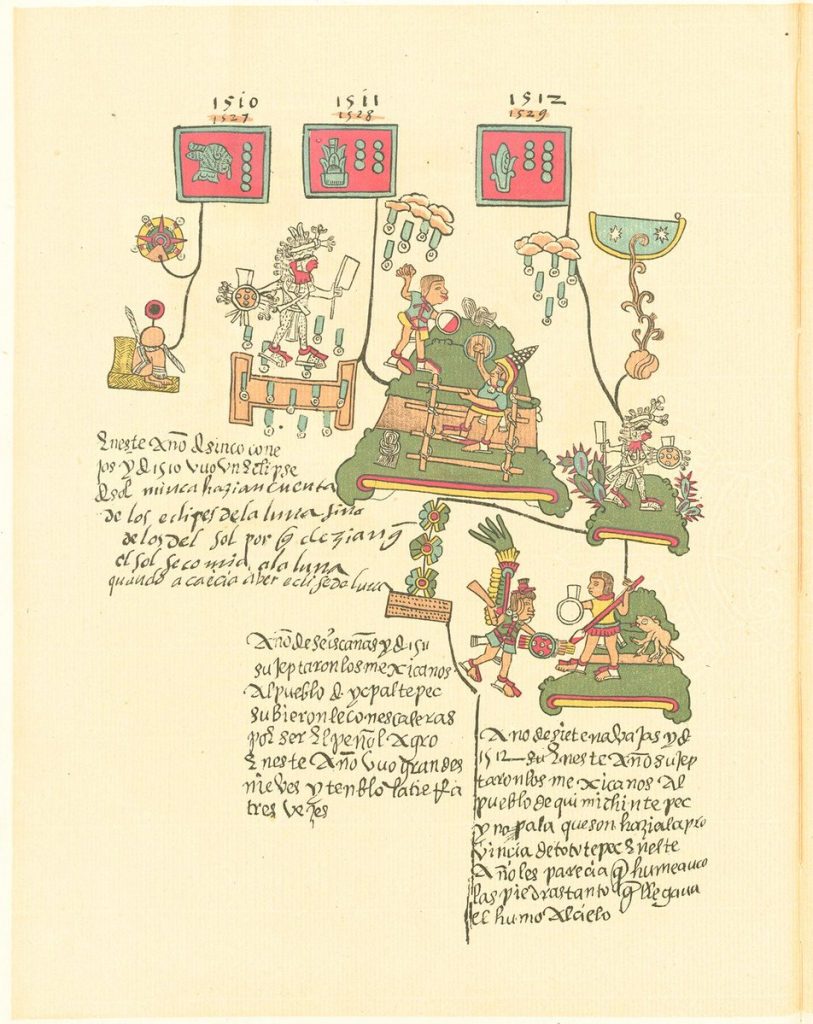 1510
1527
1511
1528
1512
1529
Eneste Año de sinco cone
jos y de 1510 vuo vn Eclipse
de sol nunca hazian cuenta
de los eclipses de la luna sino
de los del sol por q̃ deziang̃
el sol se comia a la luna
quando acaecia aber eclise de luna
Año de seis cañas y de 1511
sujeptaron los mexicanos
Al pueblo de ycpaltepec
subieronle con escaleras
por ser El peñol Agro
Eneste Año vuo grandes
nieves y tenblo la tierra
tres vezes
Año de siete navajas y de
1512 Eneste Año sujep
taron los mexicanos Al
pueblo de quimichintepec
y nopala que son hazia la pro
vincia de tototepec Eneste
Año les parecia q̃ humeauā
las piedras tanto q̃ llegaua
el humo Al cielo